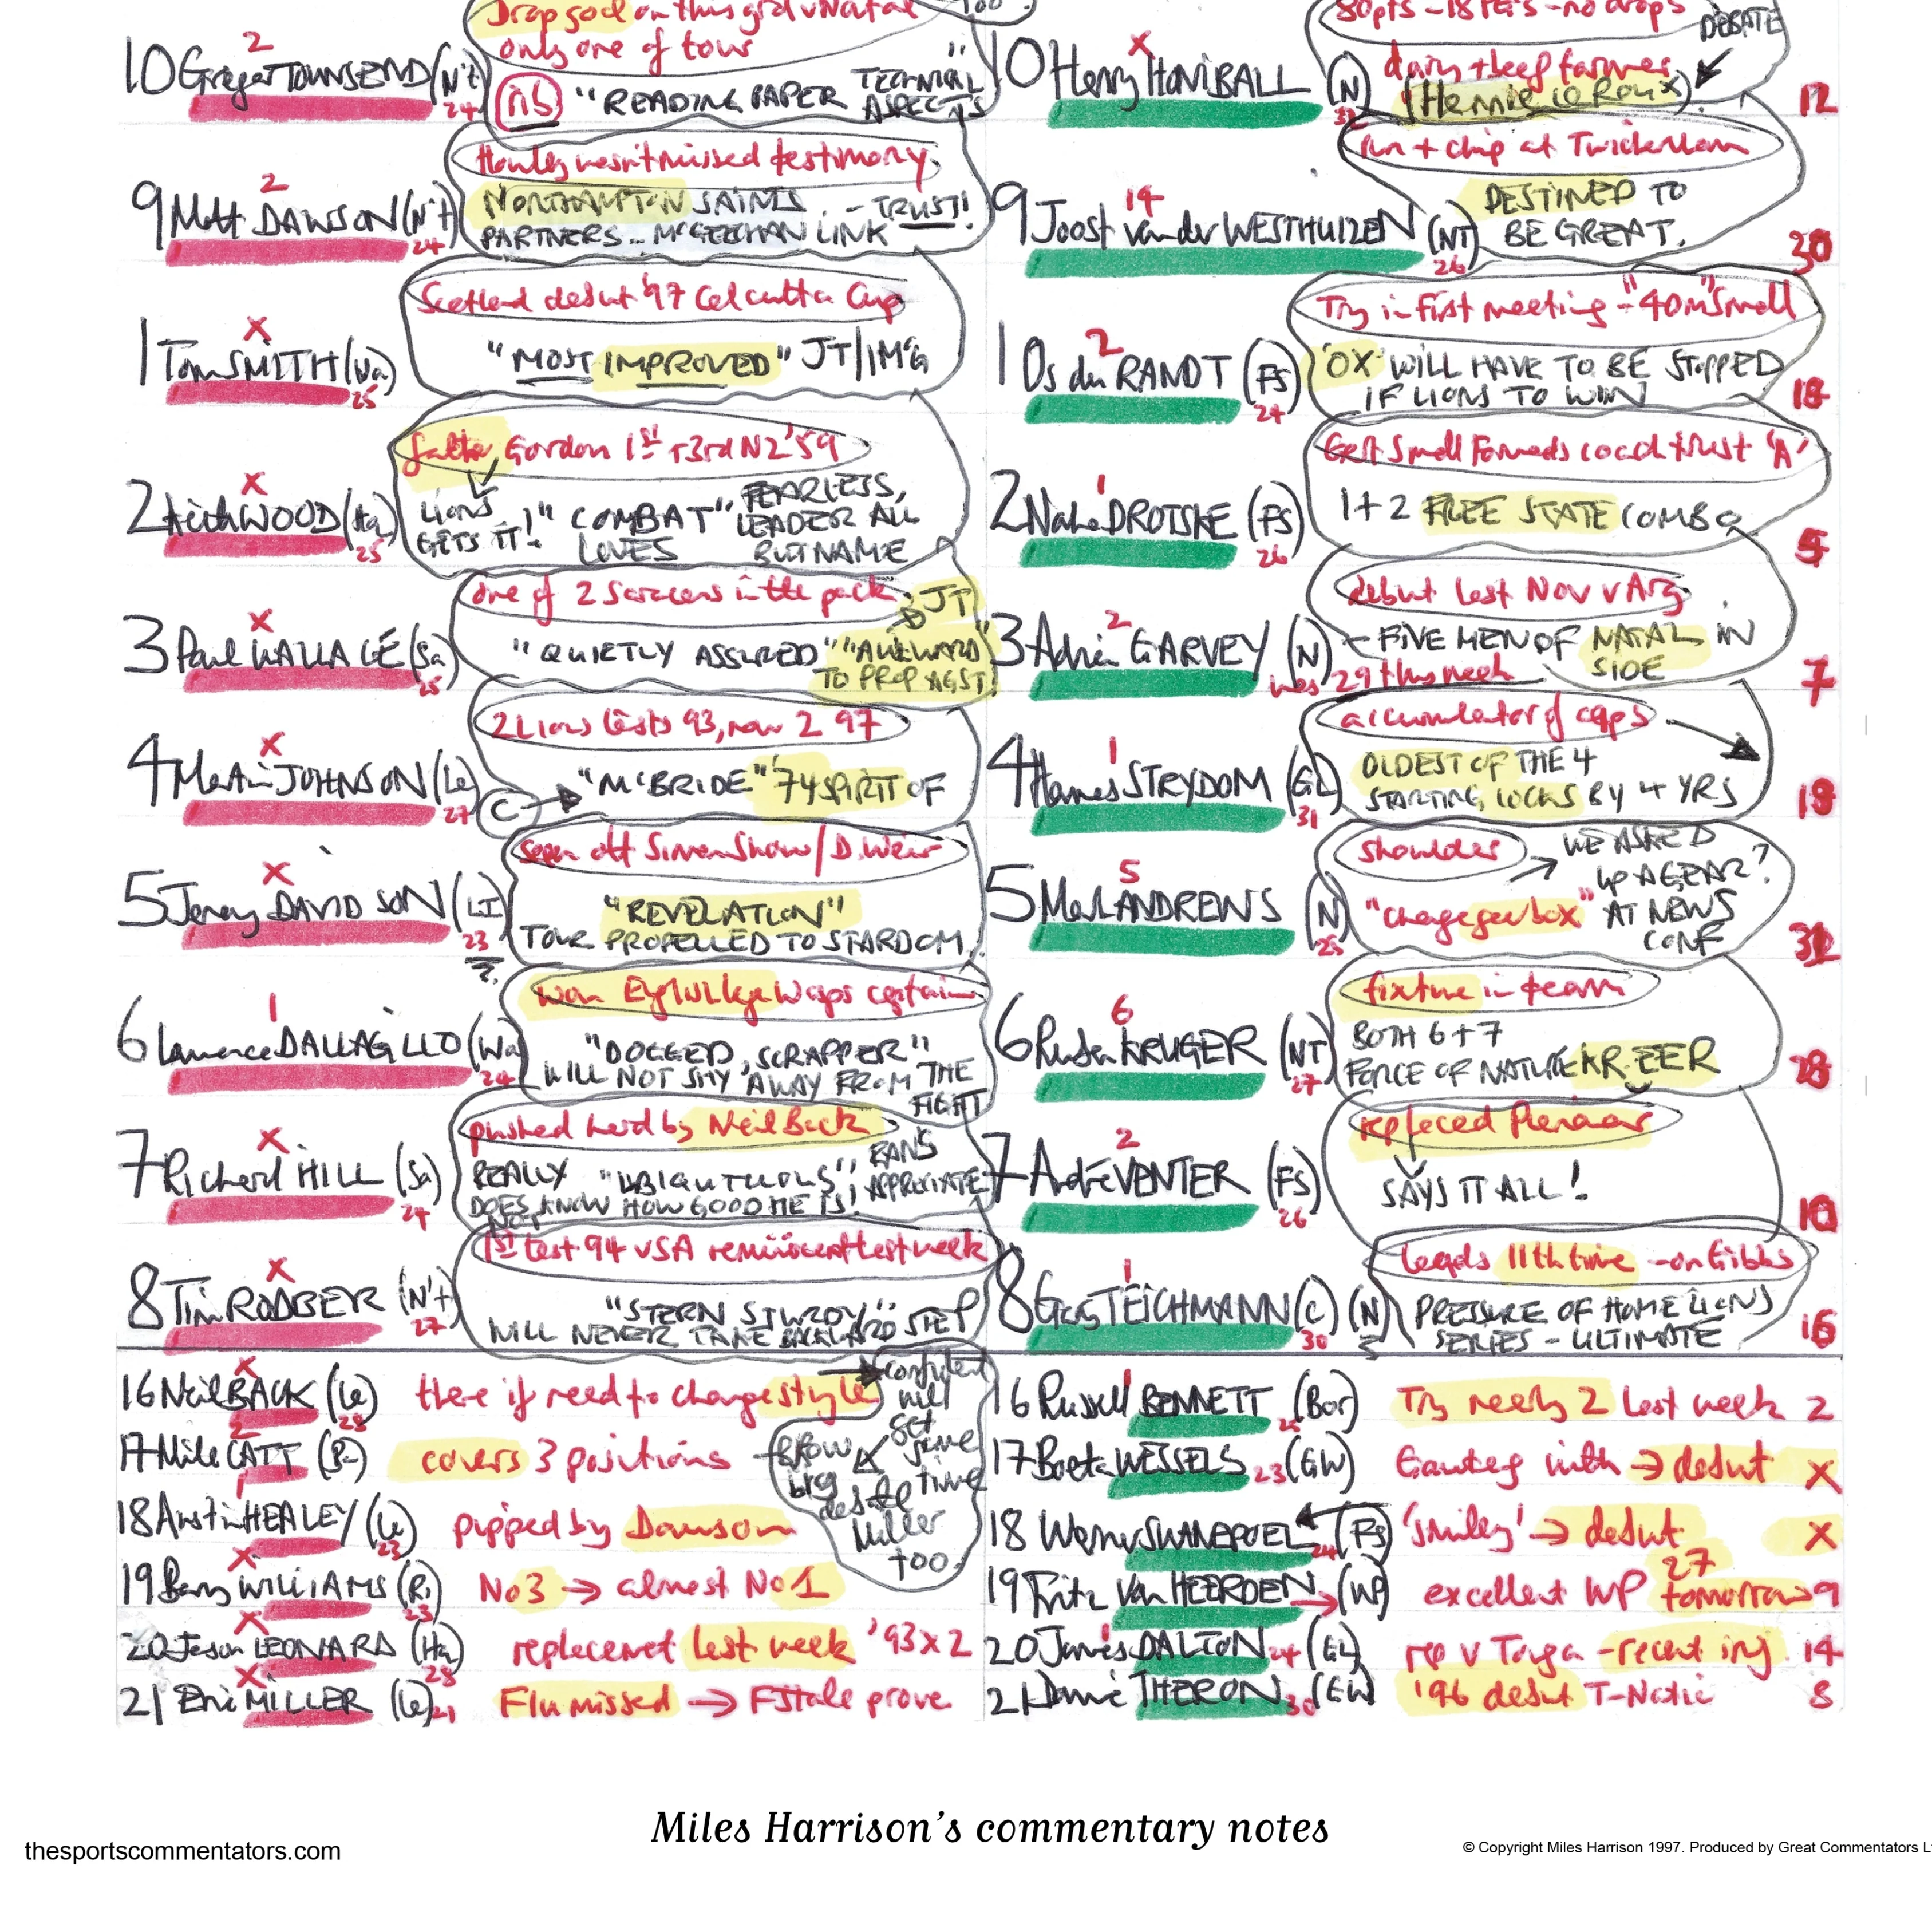 Drop goal on this grd v Natal
only one of tour
too
2
10 Gregor TOWNSEND (N't)
24
nb
"READING PAPER TECHNICAL
ASPECTS"
80pts - 18 PG's - no drops
DEBATE
X
10 Henry HONIBALL (N)
dairy + beef farmer
(Hennie le Roux)
12
Howley hasn't missed testimony
2
9 Matt DAWSON (N't)
24
NORTHAMPTON SAINTS
PARTNERS .. McGEECHAN LINK - TRUST!
run + chip at Twickenham
14
9 Joost van der WESTHUIZEN (NT)
26
DESTINED TO
BE GREAT.
30
Scotland debut '97 Calcutta Cup
X
1 Tom SMITH (Wa)
25
"MOST IMPROVED" JT/IMcG
Try in first meeting - "40m" Small
2
1 Os du RANDT (FS)
24
'OX' WILL HAVE TO BE STOPPED
IF LIONS TO WIN
18
father Gordon 1st + 3rd NZ '59
X
2 Keith WOOD (Ha)
25
LIONS
GETS IT!
"COMBAT"
LOVES
FEARLESS,
LEADER ALL
BUT NAME
Gert Small Forwards coach trust 'A'
1
2 Naka DROTSKE (FS)
26
1 + 2 FREE STATE COMBO
5
one of 2 Saracens in the pack
X
3 Paul WALLACE (Sa)
25
"QUIETLY ASSURED"
JT
"AWKWARD"
TO PROP AGST
debut last Nov v Arg
2
3 Adrian GARVEY (N)
was 29 this week
- FIVE MEN OF NATAL IN
SIDE
7
2 Lions tests 93, now 2 97
X
4 Martin JOHNSON (Le)
27
C
"McBRIDE" '74 SPIRIT OF
accumulator of caps
1
4 Hannes STRYDOM (GL)
31
OLDEST OF THE 4
STARTING LOCKS BY 4 YRS
19
seen off Simon Shaw / D. Weir
X
5 Jeremy DAVIDSON (LI)
23
"REVELATION"
TOUR PROPELLED TO STARDOM
shoulder
5
5 Mark ANDREWS (N)
25
"change gearbox"
WE ASKED
UP A GEAR?
AT NEWS
CONF
won Eng lge Wasps captain
1
6 Lawrence DALLAGLIO (Wa)
24
"DOGGED, SCRAPPER"
WILL NOT SHY AWAY FROM THE
FIGHT
fixture in team
6
6 Ruben KRUGER (NT)
27
BOTH 6 + 7
FORCE OF NATURE KR-EER
28
pushed hard by Neil Back
X
7 Richard HILL (Sa)
24
REALLY "UBIQUITUOUS"; FANS
APPRECIATE
DOES NOT KNOW HOW GOOD HE IS!
replaced Pienaar
2
7 André VENTER (FS)
26
SAYS IT ALL!
10
1st test 94 v SA reminiscent last week
X
8 Tim RODBER (N't)
27
"STERN STURDY"
WILL NEVER TAKE BACKWARD STEP
leads 11th time - on Gibbs
1
8 Gary TEICHMANN (C) (N)
30
PRESSURE OF HOME LIONS
SERIES - ULTIMATE
16
X
16 Neil BACK (Le)
28
there if need to change style
confident
will
get
some
time
2
17 Mike CATT (Ba)
covers 3 positions
1
18 Austin HEALEY (Le)
23
pipped by Dawson
Miller
too
X
19 Barry WILLIAMS (Ri)
23
No 3 → almost No 1
X
20 Jason LEONARD (Ha)
28
replacement last week '93 x 2
X
21 Eric MILLER (Le)
21
Flu missed → F State prove
1
16 Russell BENNETT (Bor)
25
Try nearly 2 last week 2
17 Boeta WESSELS 23 (GW)
Gauteng with → debut X
18 Werner SWANEPOEL (FS)
24
'smiley' → debut X
19 Fritz van HEERDEN → (WP)
excellent WP 27 tomorrow 9
20 James DALTON 24 (GL)
rep v Tonga - recent inj 14
21 Dawie THERON 30 (GW)
'96 debut T-Natie 8
Miles Harrison's commentary notes
thesportscommentators.com
© Copyright Miles Harrison 1997. Produced by Great Commentators L